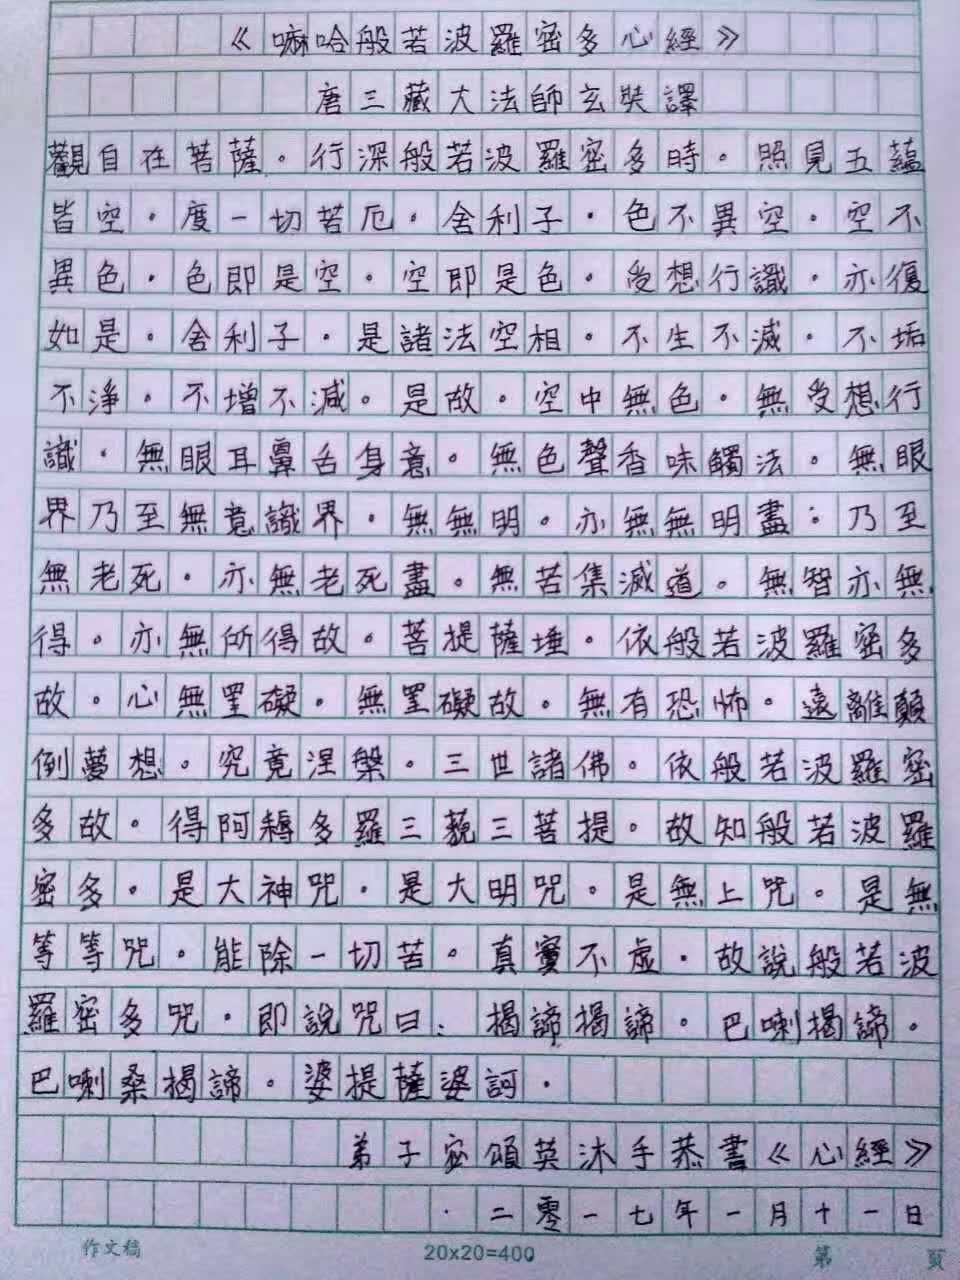 《嘛哈般若波羅密多心經》
唐三藏大法師玄奘譯
觀自在菩薩。行深般若波羅密多時。照見五蘊
皆空。度一切苦厄。舍利子。色不異空。空不
異色。色即是空。空即是色。受想行識。亦復
如是。舍利子。是諸法空相。不生不滅。不垢
不淨。不增不減。是故。空中無色。無受想行
識。無眼耳鼻舌身意。無色聲香味觸法。無眼
界乃至無意識界。無無明。亦無無明盡。乃至
無老死。亦無老死盡。無苦集滅道。無智亦無
得。亦無所得故。菩提薩埵。依般若波羅密多
故。心無罣礙。無罣礙故。無有恐怖。遠離顛
倒夢想。究竟涅槃。三世諸佛。依般若波羅密
多故。得阿耨多羅三藐三菩提。故知般若波羅
密多。是大神咒。是大明咒。是無上咒。是無
等等咒。能除一切苦。真實不虛。故說般若波
羅密多咒。即說咒曰：揭諦揭諦。巴喇揭諦。
巴喇桑揭諦。婆提薩婆訶。
弟子密頌英沐手恭書《心經》
二零一七年一月十一日
作文稿 20x20=400 第 頁